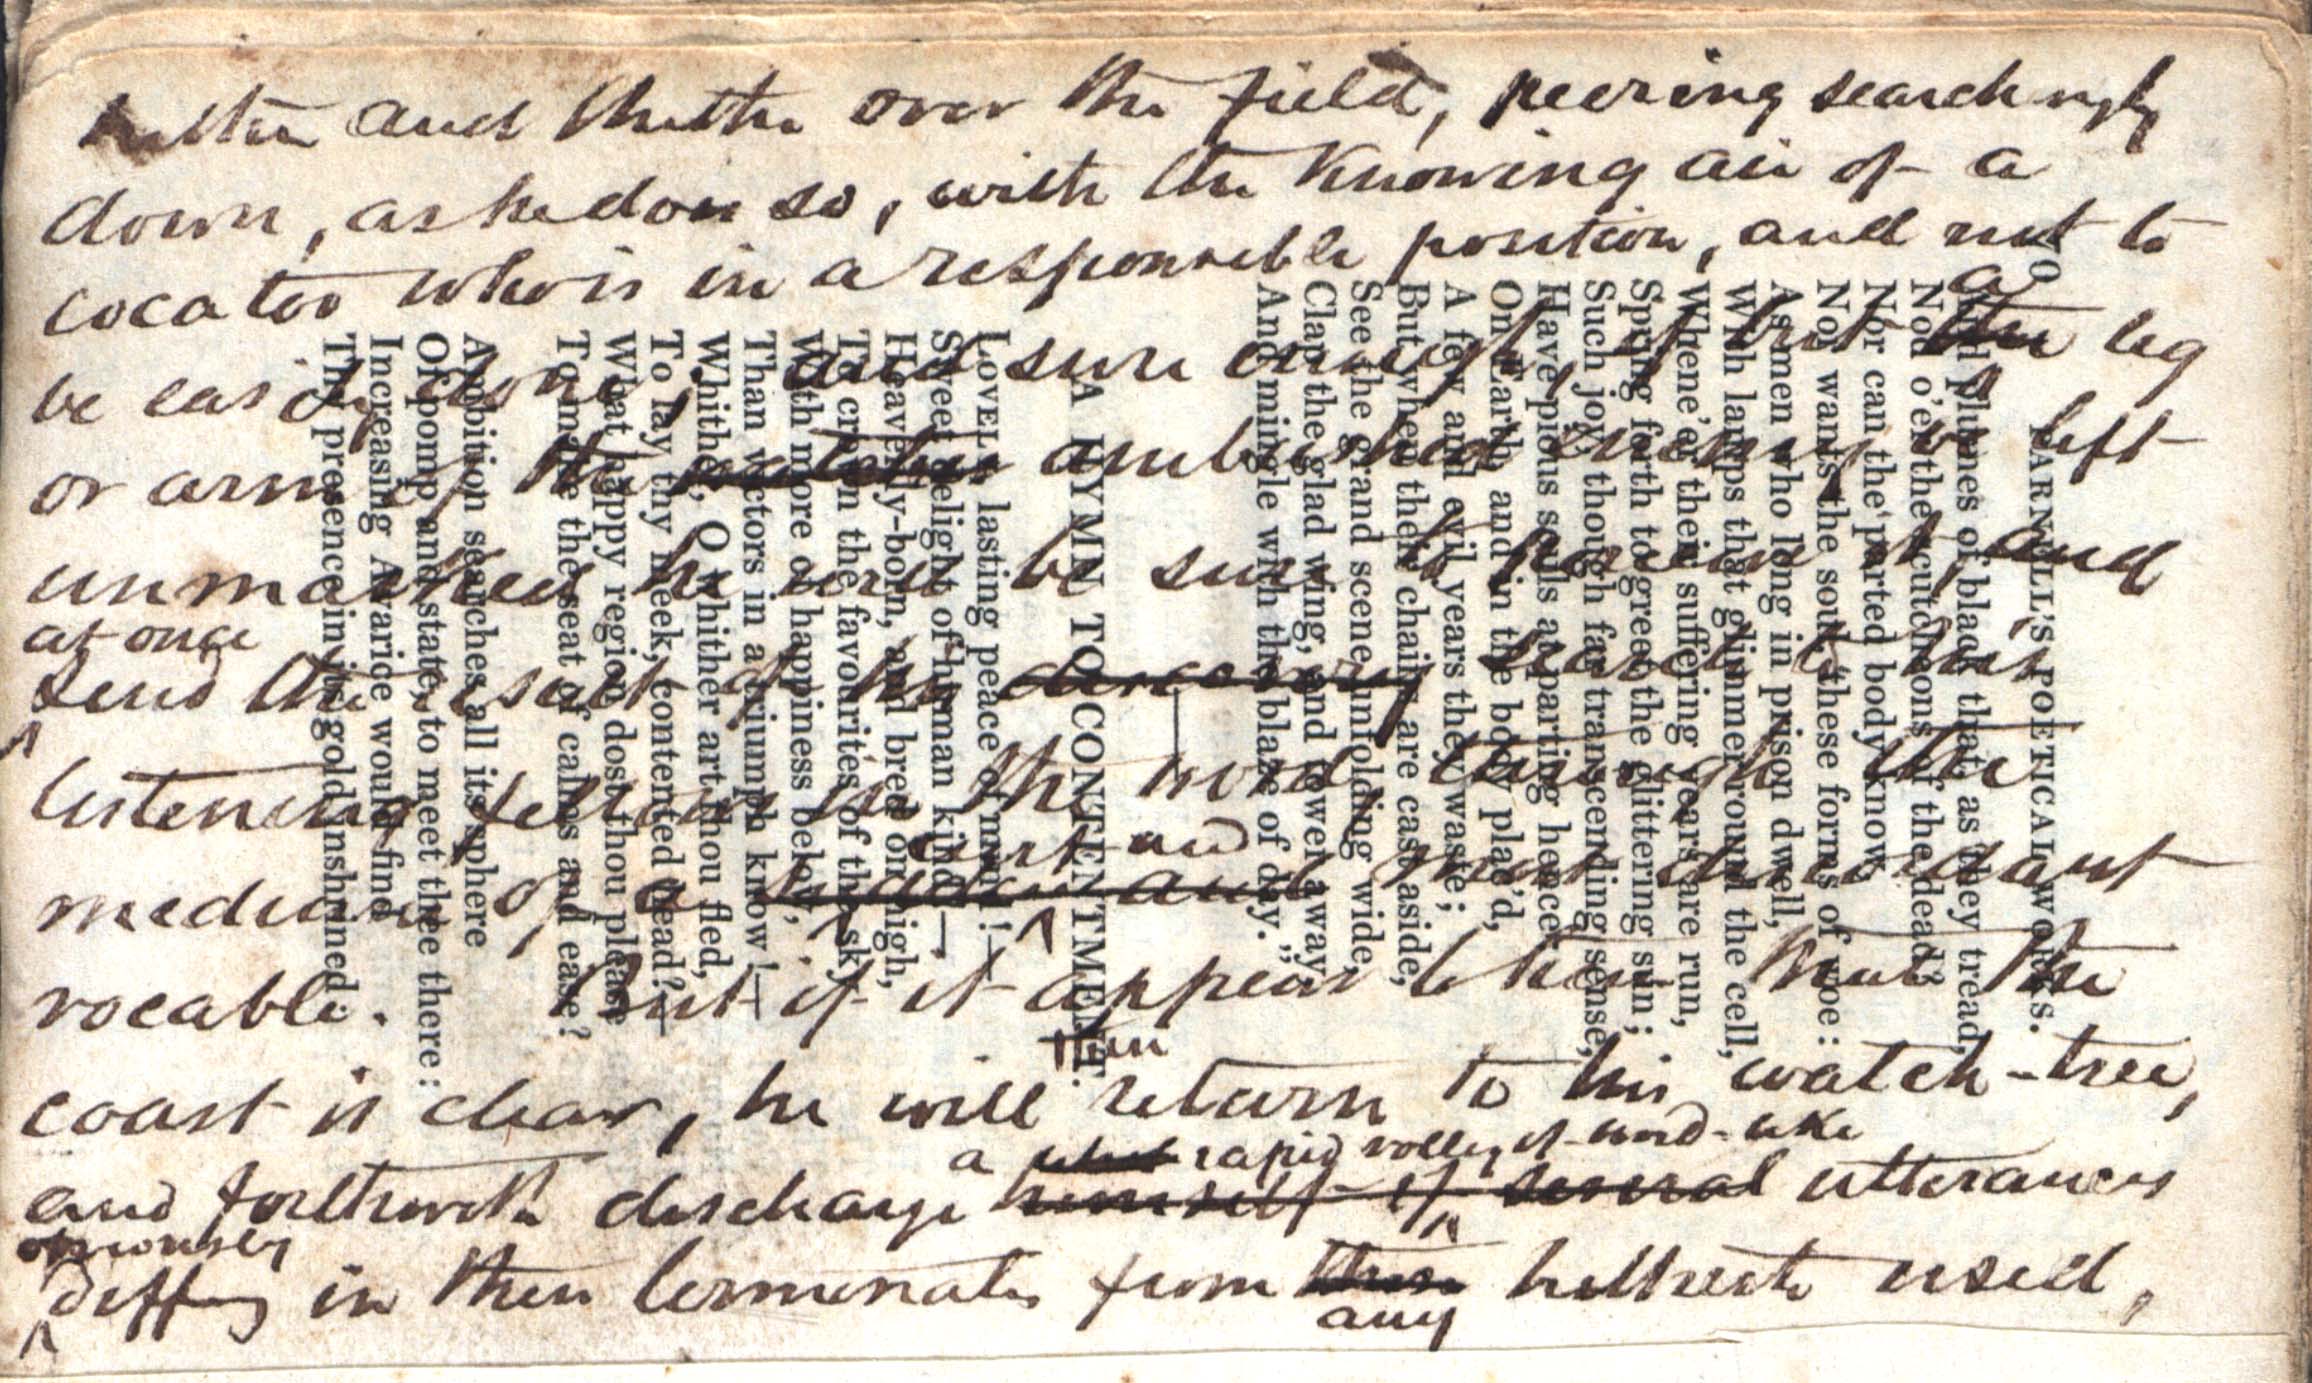 hither and thither over the field, peering searchingly
down, as he does so, with the knowing air of a
cocatoo who is in a responsible position, and not to
be easily done; and sure enough, if but the leg
a
or arm of the watcher ambushed enemy be left
unmasked he will be sure to perceive it, and
at once
send the result of his discovery search to his
listening fellows in the wood through the
curt and
medium of a sudden and most discordant
vocable. But if it appear to him that the
then
coast is clear, he will return to his watch-tree,
a rapid volley of word-like
and forthwith discharge himself of several utterances
obviously
differing in their terminates from these hitherto used,
any
PARNELL'S POETICAL WORKS.
And plumes of black that, as they tread,
Nod o'er the scutcheons of the dead?
Nor can the parted body know,
Nor wants the soul, these forms of woe:
As men who long in prison dwell,
With lamps that glimmer round the cell,
Whene'er their suffering years are run,
Spring forth to greet the glittering sun;
Such joy, though far transcending sense,
Have pious souls at parting hence.
On Earth, and in the body plac'd,
A few and evil years they waste;
But when their chains are cast aside,
See the grand scene unfolding wide,
Clap the glad wing, and tower away,
And mingle with the blaze of day."
A HYMN TO CONTENTMENT.
LOVELY, lasting peace of mind!
Sweet delight of human kind!
Heavenly-born, and bred on high,
To crown the favourites of the sky
With more of happiness below,
Than victors in a triumph know!
Whither, O whither art thou fled,
To lay thy meek, contented head?
What happy region dost thou please
To make the seat of calms and ease?
Ambition searches all its sphere
Of pomp and state, to meet thee there:
Increasing Avarice would find
Thy presence in its gold inshrined.